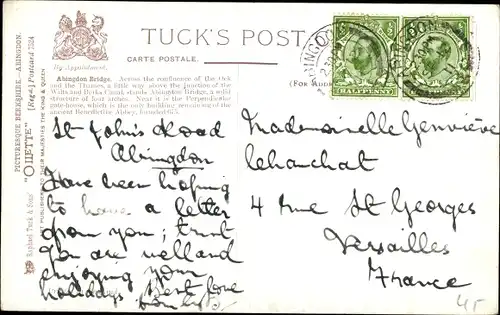 TUCK'S POST
CARTE POSTALE.
By Appointment.
(For Address
Abingdon Bridge. Across the confluence of the Ock
and the Thames, a little way above the junction of the
Wilts and Berks Canal, stands Abingdon Bridge, a solid
structure of four arches. Near it is the Perpendicular
which is the only building remaining of the
ancient Benedictine Abbey, founded 675.
PICTURESQUE BERKSHIRE. ABINGDON.
"OILETTE" [Regd.] Postcard 7524
Raphael Tuck & Sons'
PUBLISHERS TO THEIR MAJESTIES THE KING & QUEEN
ABINGDON
HALFPENNY
St John's Road
Abingdon
Have been hoping
to have a letter
from you; trust
you are well and
enjoying your
holidays. Best love
from
Mademoiselle Geneviève
Lehanchat
4 rue St Georges
Versailles
France
45